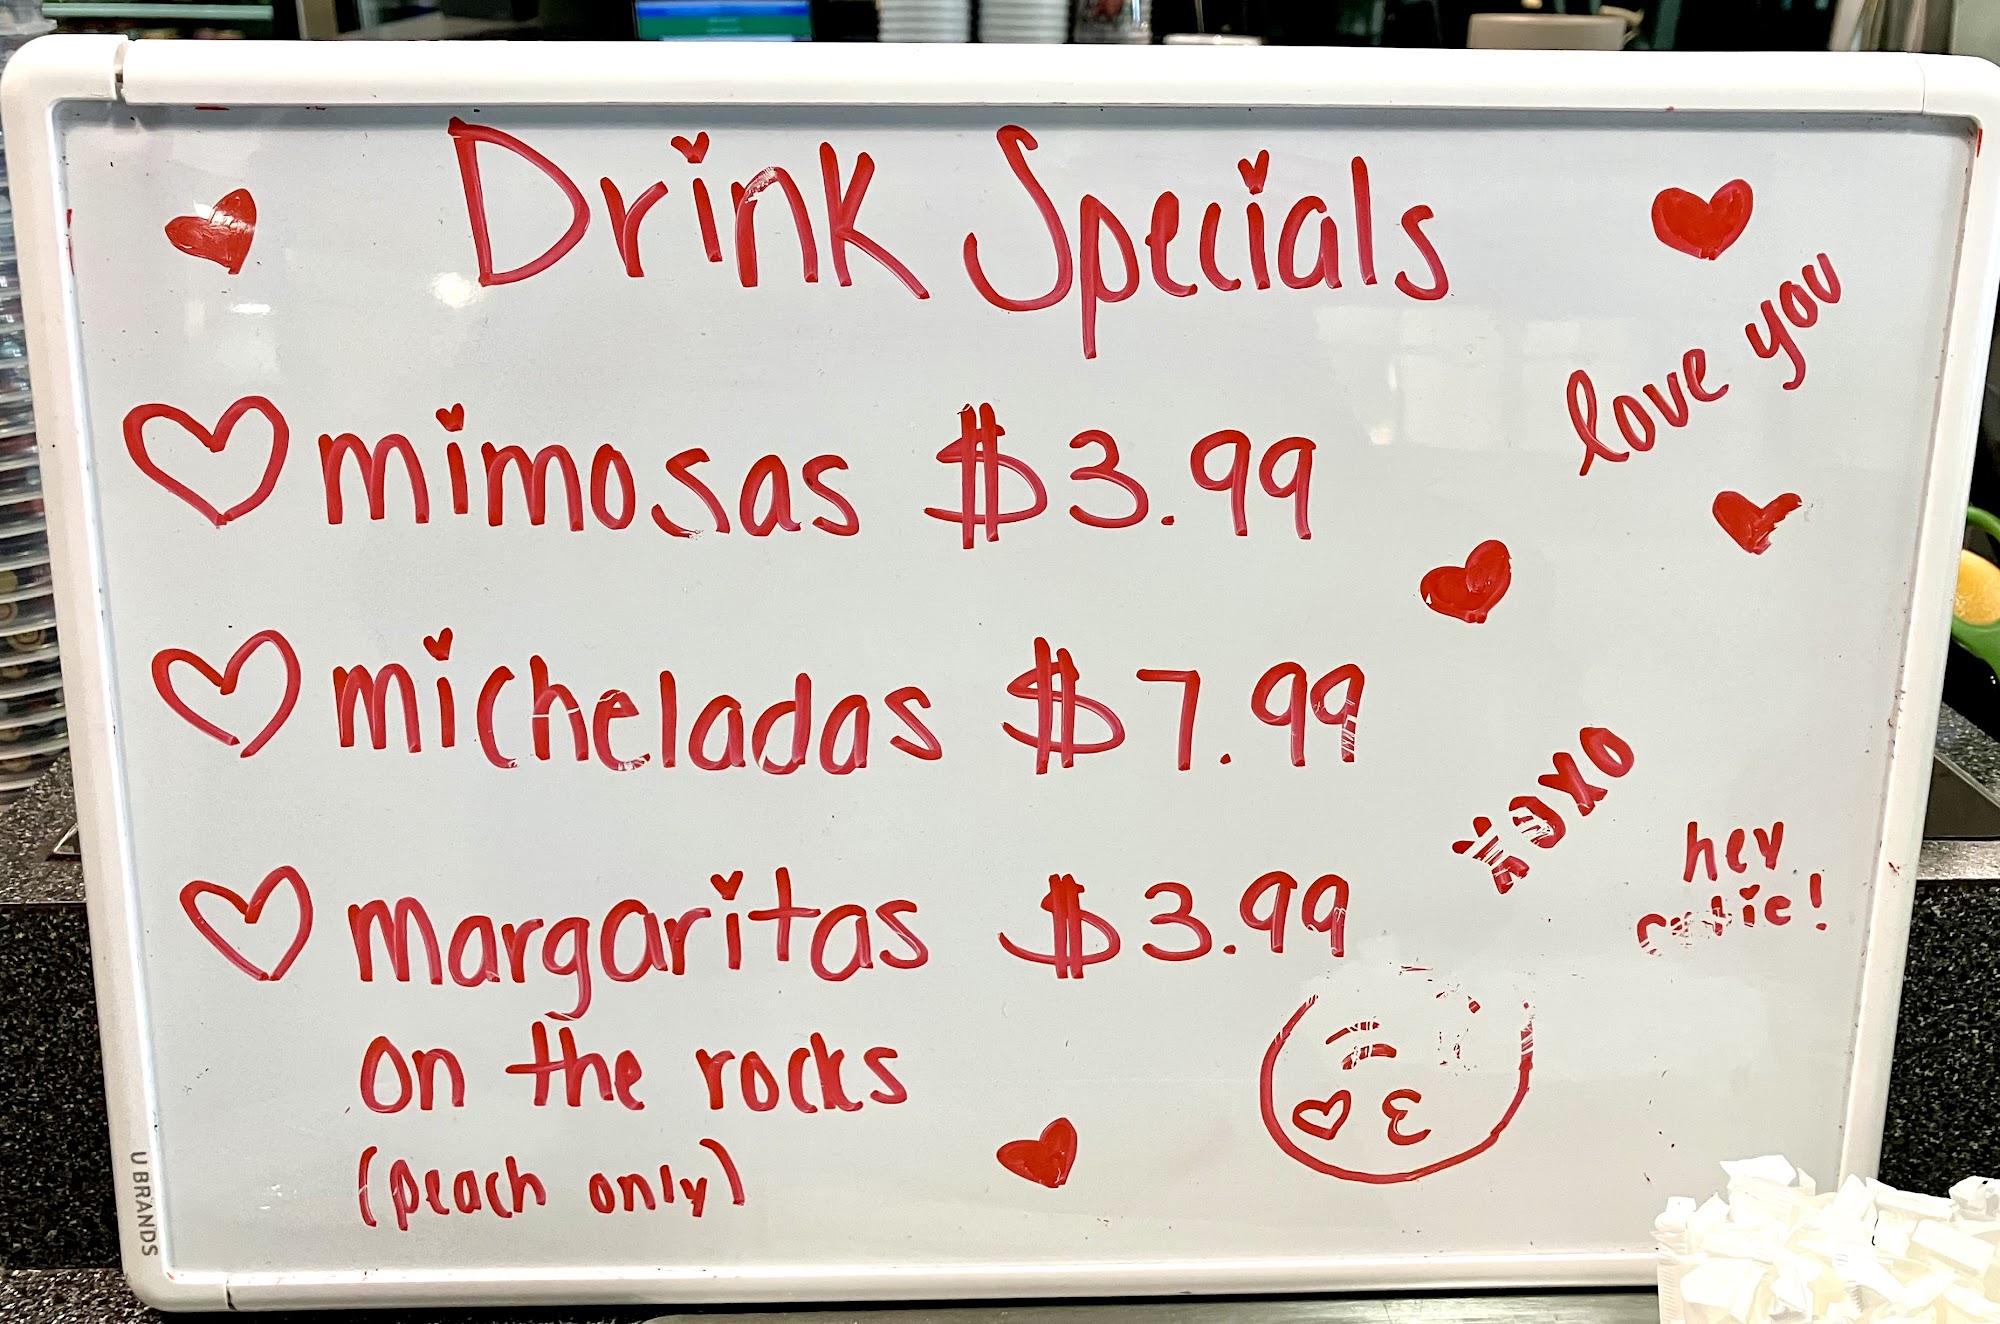 Drink Specials
love you
mimosas $3.99
micheladas $7.99
xoxo
hey
cutie!
margaritas $3.99
on the rocks
(peach only)
U BRANDS